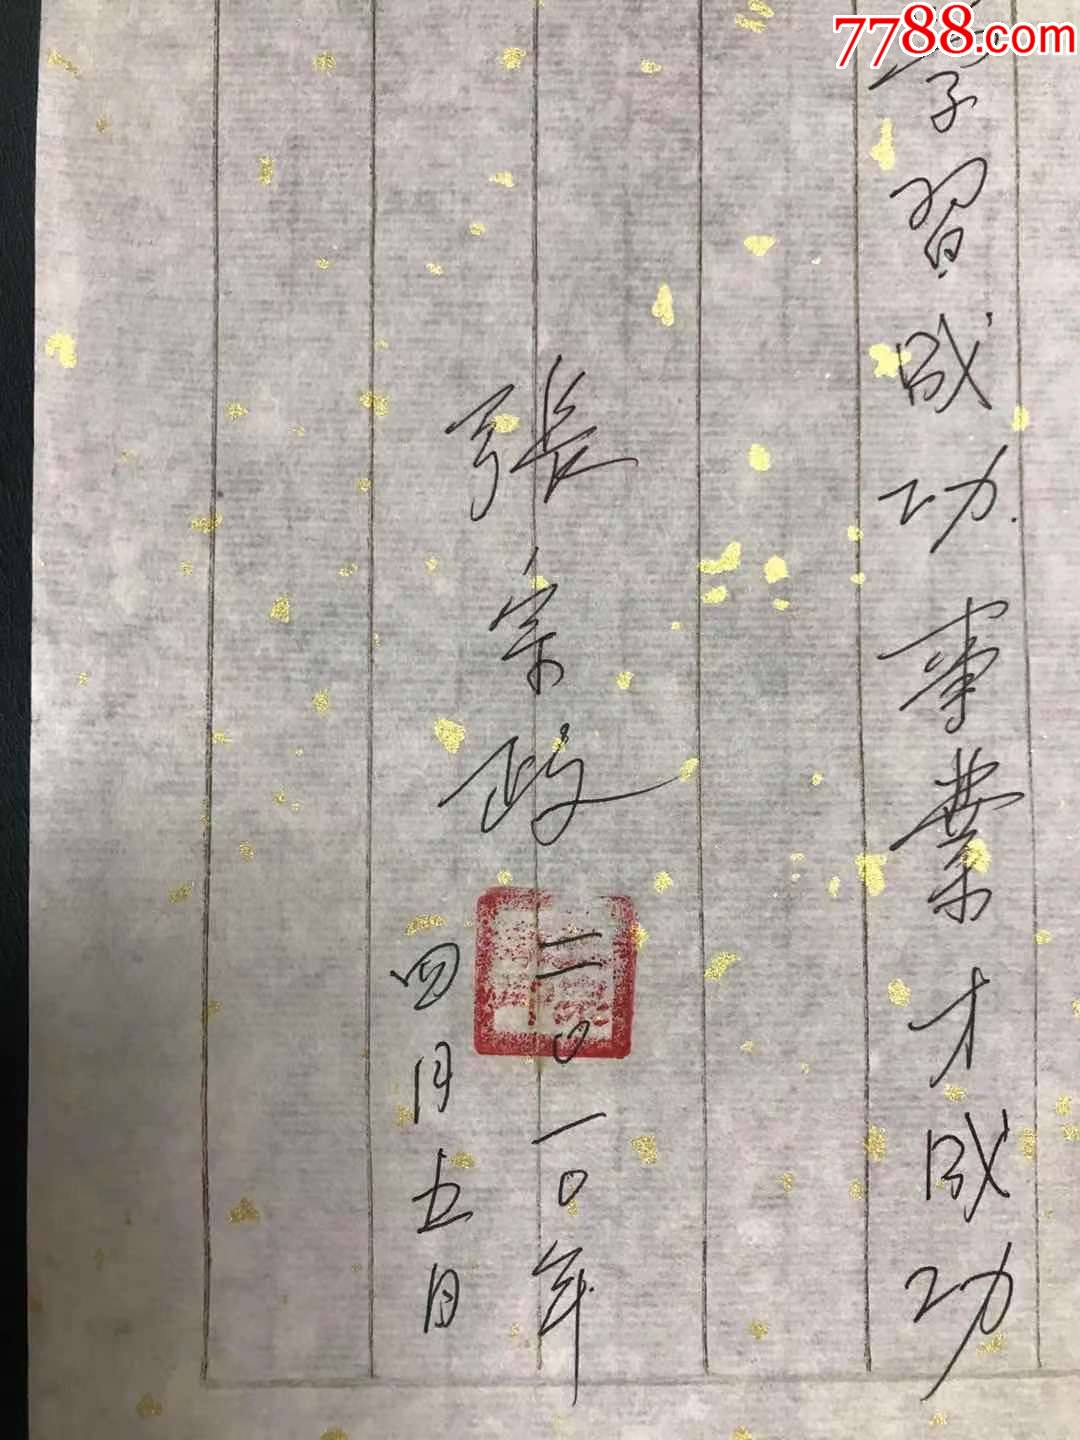 7788.com
學習成功.事業才成功
張宗政
二〇一〇年
四月五日